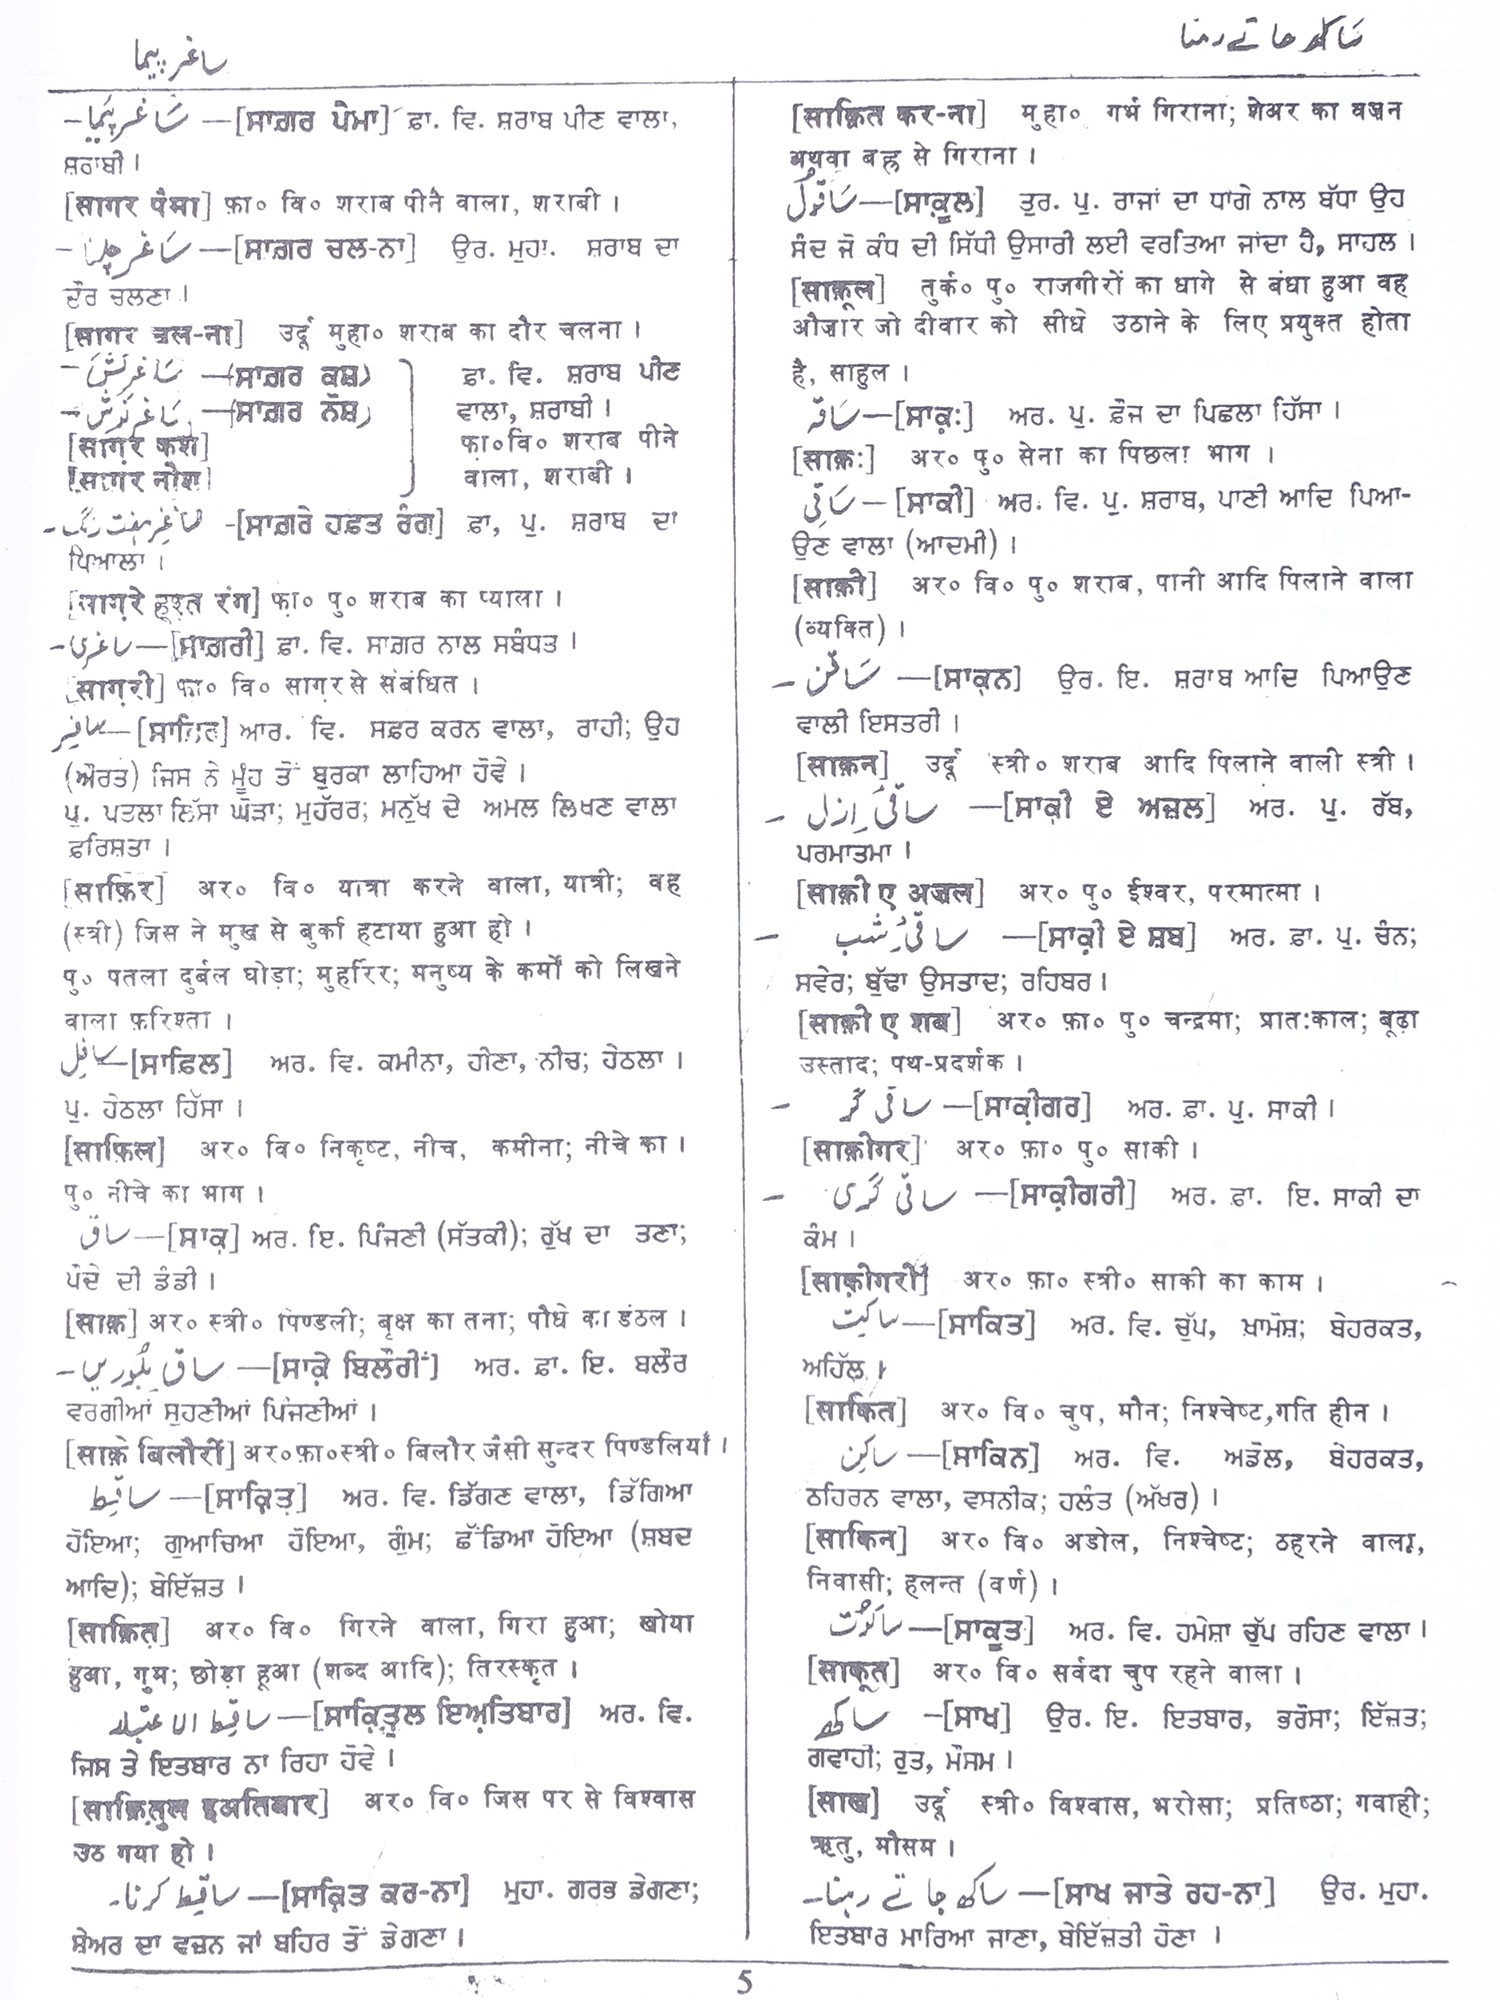 ساغر پیما
ساکھ جاتے رہنا
ساغر پیما —[ਸਾਗ਼ਰ ਪੈਮਾ] ਫ਼ਾ. ਵਿ. ਸ਼ਰਾਬ ਪੀਣ ਵਾਲਾ,
ਸ਼ਰਾਬੀ।
[सागर पैमा] फ़ा० वि० शराब पीने वाला, शराबी ।
ساغر چلنا —[ਸਾਗ਼ਰ ਚਲ-ਨਾ] ਉਰ. ਮੁਹਾ. ਸ਼ਰਾਬ ਦਾ
ਦੌਰ ਚਲਣਾ।
[सागर चल-ना] उर्दू मुहा० शराब का दौर चलना ।
ساغر کش —(ਸਾਗ਼ਰ ਕਸ਼) ਫ਼ਾ. ਵਿ. ਸ਼ਰਾਬ ਪੀਣ
ساغر نوش —(ਸਾਗ਼ਰ ਨੋਸ਼) ਵਾਲਾ, ਸ਼ਰਾਬੀ।
[साग़र कश] फा०वि० शराब पीने
[साग़र नोश] वाला, शराबी ।
ساغر ہفت رنگ -[ਸਾਗ਼ਰੇ ਹਫ਼ਤ ਰੰਗ] ਫ਼ਾ, ਪੁ. ਸ਼ਰਾਬ ਦਾ
ਪਿਆਲਾ।
[साग़रे हफ़्त रंग] फ़ा० पु० शराब का प्याला ।
ساغری —[ਸਾਗ਼ਰੀ] ਫ਼ਾ. ਵਿ. ਸਾਗ਼ਰ ਨਾਲ ਸਬੰਧਤ।
[साग़री] फा० वि० साग़र से संबंधित ।
سافِر —[ਸਾਫ਼ਿਰ] ਆਰ. ਵਿ. ਸਫ਼ਰ ਕਰਨ ਵਾਲਾ, ਰਾਹੀ; ਉਹ
(ਔਰਤ) ਜਿਸ ਨੇ ਮੂੰਹ ਤੋਂ ਬੁਰਕਾ ਲਾਹਿਆ ਹੋਵੇ।
ਪੁ. ਪਤਲਾ ਲਿੱਸਾ ਘੋੜਾ; ਮੁਹੱਰਰ; ਮਨੁੱਖ ਦੇ ਅਮਲ ਲਿਖਣ ਵਾਲਾ
ਫ਼ਰਿਸ਼ਤਾ।
[साफ़िर] अर० वि० यात्रा करने वाला, यात्री; वह
(स्त्री) जिस ने मुख से बुर्का हटाया हुआ हो ।
पु० पतला दुर्बल घोड़ा; मुहर्रिर; मनुष्य के कर्मों को लिखने
वाला फ़रिश्ता ।
سافِل —[ਸਾਫ਼ਿਲ] ਅਰ. ਵਿ. ਕਮੀਨਾ, ਹੀਣਾ, ਨੀਚ; ਹੇਠਲਾ।
ਪੁ. ਹੇਠਲਾ ਹਿੱਸਾ।
[साफ़िल] अर० वि० निकृष्ट, नीच, कमीना; नीचे का ।
पु० नीचे का भाग ।
ساق —[ਸਾਕ਼] ਅਰ. ਇ. ਪਿੰਜਣੀ (ਸੱਤਕੀ); ਰੁੱਖ ਦਾ ਤਣਾ;
ਪੌਦੇ ਦੀ ਡੰਡੀ।
[साक़] अर० स्त्री० पिण्डली; बृक्ष का तना; पौधे का डंठल ।
ساقِ بِلوریں —[ਸਾਕ਼ੇ ਬਿਲੌਰੀਂ] ਅਰ. ਫ਼ਾ. ਇ. ਬਲੌਰ
ਵਰਗੀਆਂ ਸੁਹਣੀਆਂ ਪਿੰਜਣੀਆਂ।
[साक़े बिलौरीं] अर०फ़ा०स्त्री० बिलौर जैसी सुन्दर पिण्डलियाँ ।
ساقِط —[ਸਾਕ਼ਿਤ਼] ਅਰ. ਵਿ. ਡਿੱਗਣ ਵਾਲਾ, ਡਿੱਗਿਆ
ਹੋਇਆ; ਗੁਆਚਿਆ ਹੋਇਆ, ਗੁੰਮ; ਛੱਡਿਆ ਹੋਇਆ (ਸ਼ਬਦ
ਆਦਿ); ਬੇਇੱਜ਼ਤ।
[साक़ित़] अर० वि० गिरने वाला, गिरा हुआ; खोया
हुआ, गुम; छोड़ा हूआ (शब्द आदि); तिरस्कृत ।
ساقِط الاعتبار —[ਸਾਕ਼ਿਤੁਲ ਇਅ਼ਤਿਬਾਰ] ਅਰ. ਵਿ.
ਜਿਸ ਤੇ ਇਤਬਾਰ ਨਾ ਰਿਹਾ ਹੋਵੇ।
[साक़ितुल इअतिबार] अर० वि० जिस पर से विश्वास
उठ गया हो ।
ساقِط کرنا —[ਸਾਕ਼ਿਤ ਕਰ-ਨਾ] ਮੁਹਾ. ਗਰਭ ਡੇਗਣਾ;
ਸ਼ੇਅਰ ਦਾ ਵਜ਼ਨ ਜਾਂ ਬਹਿਰ ਤੋਂ ਡੇਗਣਾ।
[साक़ित कर-ना] मुहा० गर्भ गिराना; शेअर का वज़न
अथवा बह्र से गिराना ।
ساقُول —[ਸਾਕ਼ੂਲ] ਤੁਰ. ਪੁ. ਰਾਜਾਂ ਦਾ ਧਾਗੇ ਨਾਲ ਬੱਧਾ ਉਹ
ਸੰਦ ਜੋ ਕੰਧ ਦੀ ਸਿੱਧੀ ਉਸਾਰੀ ਲਈ ਵਰਤਿਆ ਜਾਂਦਾ ਹੈ, ਸਾਹਲ।
[साक़ूल] तुर्क० पु० राजगीरों का धागे से बंधा हुआ वह
औज़ार जो दीवार को सीधे उठाने के लिए प्रयुक्त होता
है, साहुल ।
ساقہ —[ਸਾਕ਼:] ਅਰ. ਪੁ. ਫ਼ੌਜ ਦਾ ਪਿਛਲਾ ਹਿੱਸਾ।
[साक़:] अर० पु० सेना का पिछला भाग ।
ساقی —[ਸਾਕੀ] ਅਰ. ਵਿ. ਪੁ. ਸ਼ਰਾਬ, ਪਾਣੀ ਆਦਿ ਪਿਆ-
ਉਣ ਵਾਲਾ (ਆਦਮੀ)।
[साक़ी] अर० वि० पु० शराब, पानी आदि पिलाने वाला
(व्यक्ति) ।
ساقن —[ਸਾਕ਼ਨ] ਉਰ. ਇ. ਸ਼ਰਾਬ ਆਦਿ ਪਿਆਉਣ
ਵਾਲੀ ਇਸਤਰੀ।
[साक़न] उर्दू स्त्री० शराब आदि पिलाने वाली स्त्री ।
ساقیِ ازل —[ਸਾਕ਼ੀ ਏ ਅਜ਼ਲ] ਅਰ. ਪੁ. ਰੱਬ,
ਪਰਮਾਤਮਾ।
[साक़ी ए अज़ल] अर० पु० ईश्वर, परमात्मा ।
ساقیِ شب —[ਸਾਕ਼ੀ ਏ ਸ਼ਬ] ਅਰ. ਫ਼ਾ. ਪੁ. ਚੰਨ;
ਸਵੇਰ; ਬੁੱਢਾ ਉਸਤਾਦ; ਰਹਿਬਰ।
[साक़ी ए शब] अर० फ़ा० पु० चन्द्रमा; प्रात:काल; बूढ़ा
उस्ताद; पथ-प्रदर्शक ।
ساقی گر —[ਸਾਕ਼ੀਗਰ] ਅਰ. ਫ਼ਾ. ਪੁ. ਸਾਕੀ।
[साक़ीगर] अर० फ़ा० पु० साकी ।
ساقی گری —[ਸਾਕ਼ੀਗਰੀ] ਅਰ. ਫ਼ਾ. ਇ. ਸਾਕੀ ਦਾ
ਕੰਮ।
[साक़ीगरी] अर० फ़ा० स्त्री० साकी का काम ।
ساکِت —[ਸਾਕਿਤ] ਅਰ. ਵਿ. ਚੁੱਪ, ਖ਼ਾਮੋਸ਼; ਬੇਹਰਕਤ,
ਅਹਿੱਲ।
[साकित] अर० वि० चुप, मौन; निश्चेष्ट,गति हीन ।
ساکِن —[ਸਾਕਿਨ] ਅਰ. ਵਿ. ਅਡੋਲ, ਬੇਹਰਕਤ,
ਠਹਿਰਨ ਵਾਲਾ, ਵਸਨੀਕ; ਹਲੰਤ (ਅੱਖਰ)।
[साकिन] अर० वि० अडोल, निश्चेष्ट; ठहरने वाला,
निवासी; हलन्त (वर्ण) ।
ساکُوت —[ਸਾਕੂਤ] ਅਰ. ਵਿ. ਹਮੇਸ਼ਾ ਚੁੱਪ ਰਹਿਣ ਵਾਲਾ।
[साकूत] अर० वि० सर्वदा चुप रहने वाला ।
ساکھ -[ਸਾਖ] ਉਰ. ਇ. ਇਤਬਾਰ, ਭਰੋਸਾ; ਇੱਜ਼ਤ;
ਗਵਾਹੀ; ਰੁਤ, ਮੌਸਮ।
[साख] उर्दू स्त्री० विश्वास, भरोसा; प्रतिष्ठा; गवाही;
ऋतु, मौसम ।
ساکھ جاتے رہنا —[ਸਾਖ ਜਾਤੇ ਰਹ-ਨਾ] ਉਰ. ਮੁਹਾ.
ਇਤਬਾਰ ਮਾਰਿਆ ਜਾਣਾ, ਬੇਇੱਜ਼ਤੀ ਹੋਣਾ।
5